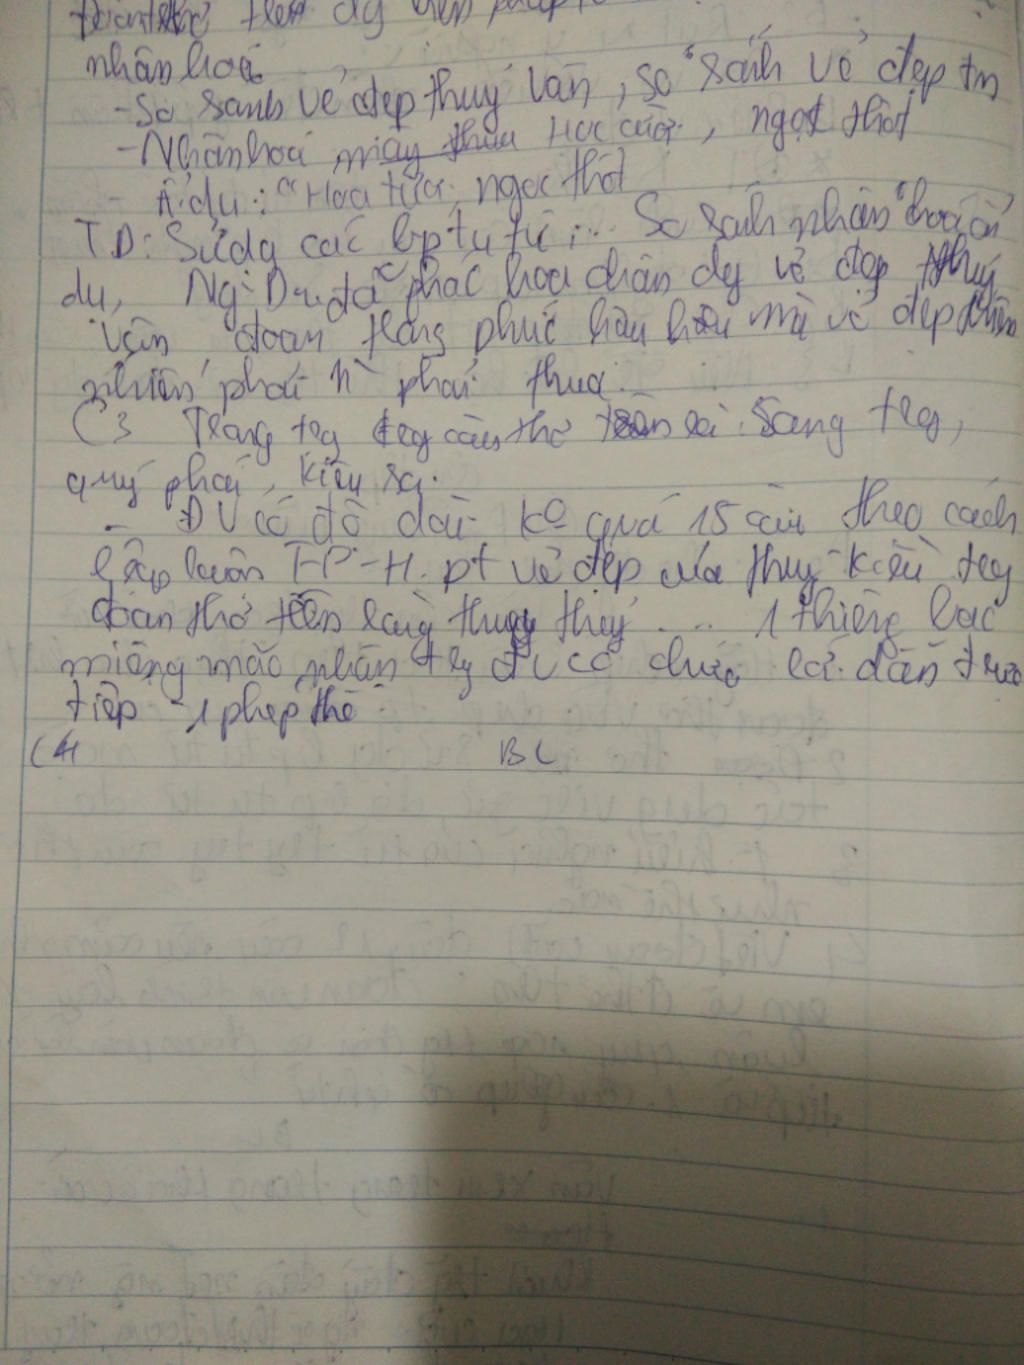 nhân hoá
- So sánh vẻ đẹp thuý Vân, so sánh vẻ đẹp tn
- Nhân hoá, mây thua Hoa cười, ngọt thốt
- Ẩ dụ: "Hoa cười, ngọc thốt
TD: Sử dg các bp tu từ ... So sánh nhân hoá ẩn
dụ, Ng Du đã phác hoạ chân dg vẻ đẹp thuý
Vân đoan trang phúc hậu mà vẻ đẹp thiên
nhiên phải phải thua.
C3 Trang trg trg câu thơ trên là: Sang trg,
quý phái, kiêu sa.
- ĐV có độ dài ko quá 15 câu theo cách
lập luận T-P-H. pt vẻ đẹp của thuý Kiều trg
đoạn thơ trên làng thuy .... 1 thiên bạc
mệnh não nhân trg đv có chứa lời dẫn trực
tiếp - 1 phép thế
C4 BL